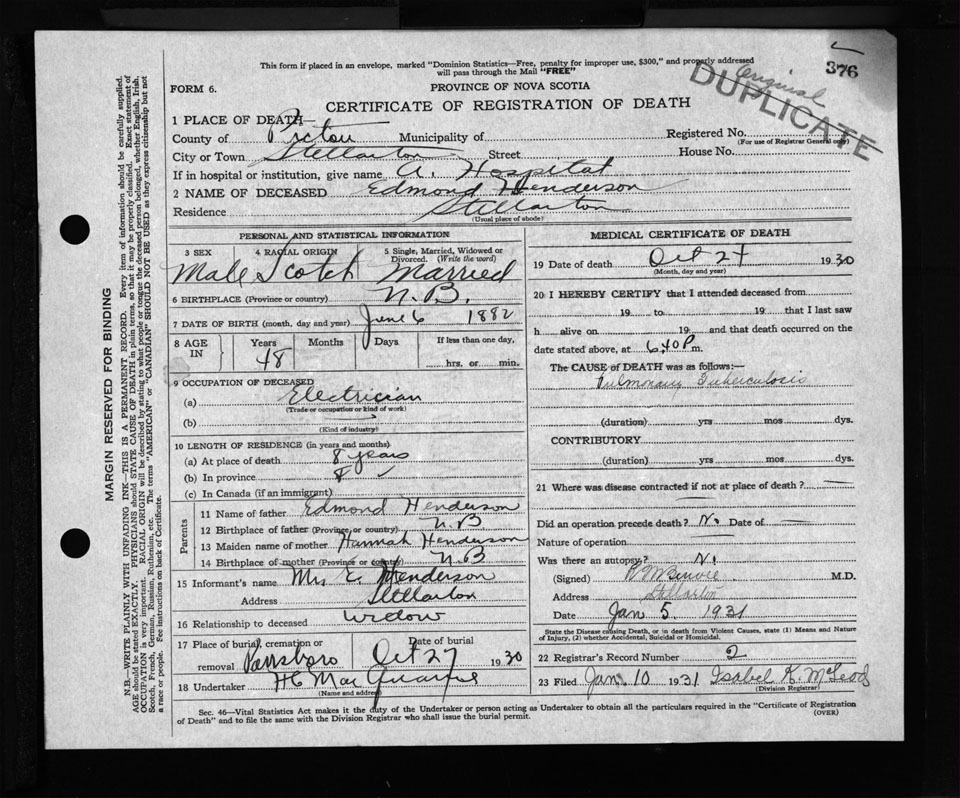 This form if placed in an envelope, marked "Dominion Statistics—Free, penalty for improper use, $300," and properly addressed
will pass through the Mail "FREE"
376
Original
DUPLICATE
FORM 6.
PROVINCE OF NOVA SCOTIA
CERTIFICATE OF REGISTRATION OF DEATH
1 PLACE OF DEATH—
County of Pictou Municipality of Registered No.
(For use of Registrar General only)
City or Town Stellarton Street House No.
If in hospital or institution, give name A. Hospital
2 NAME OF DECEASED Edmond Henderson
Residence Stellarton
(Usual place of abode)
MARGIN RESERVED FOR BINDING
N.B.—WRITE PLAINLY WITH UNFADING INK—THIS IS A PERMANENT RECORD. Every item of information should be carefully supplied.
AGE should be stated EXACTLY. PHYSICIANS should STATE CAUSE OF DEATH in plain terms, so that it may be properly classified. Exact statement of
OCCUPATION is very important. RACIAL ORIGIN will be described by stating to what people or tongue the deceased person belonged, whether English, Irish,
Scotch, French, German, Russian, Ruthenian, etc. The terms "AMERICAN" or "CANADIAN" SHOULD NOT BE USED as they express citizenship but not
a race or people. See instructions on back of Certificate.
PERSONAL AND STATISTICAL INFORMATION
3 SEX 4 RACIAL ORIGIN 5 Single, Married, Widowed or
Divorced. (Write the word)
Male Scotch Married
6 BIRTHPLACE (Province or country) N.B.
7 DATE OF BIRTH (month, day and year) June 6 1882
8 AGE IN Years Months Days If less than one day,
48 hrs. or min.
9 OCCUPATION OF DECEASED
(a) Electrician
(Trade or occupation or kind of work)
(b)
(Kind of industry)
10 LENGTH OF RESIDENCE (in years and months)
(a) At place of death 8 years
(b) In province 8 ✓
(c) In Canada (if an immigrant)
Parents
11 Name of father Edmond Henderson
12 Birthplace of father (Province or country) N.B
13 Maiden name of mother Hannah Henderson
14 Birthplace of mother (Province or country) N.B
15 Informant's name Mrs E. Henderson
Address Stellarton
16 Relationship to deceased widow
17 Place of burial, cremation or Date of burial
removal Parrsboro Oct 27 1930
18 Undertaker
(Name and address)
MEDICAL CERTIFICATE OF DEATH
19 Date of death Oct 24 1930
(Month, day and year)
20 I HEREBY CERTIFY that I attended deceased from
19 to 19 that I last saw
h alive on 19 and that death occurred on the
date stated above, at 6.40 P m.
The CAUSE OF DEATH was as follows:—
Pulmonary Tuberculosis
(duration) yrs mos dys.
CONTRIBUTORY
(duration) yrs mos dys.
21 Where was disease contracted if not at place of death?
Did an operation precede death? No Date of
Nature of operation
Was there an autopsy? No
(Signed) M.D.
Address Stellarton
Date Jan 5 1931
State the Disease causing Death, or in death from Violent Causes, state (1) Means and Nature
of Injury, (2) whether Accidental, Suicidal or Homicidal.
22 Registrar's Record Number 2
23 Filed Jan. 10 1931 Isabel K. McLeod
(Division Registrar)
Sec. 46—Vital Statistics Act makes it the duty of the Undertaker or person acting as Undertaker to obtain all the particulars required in the "Certificate of Registration
of Death" and to file the same with the Division Registrar who shall issue the burial permit.
(OVER)